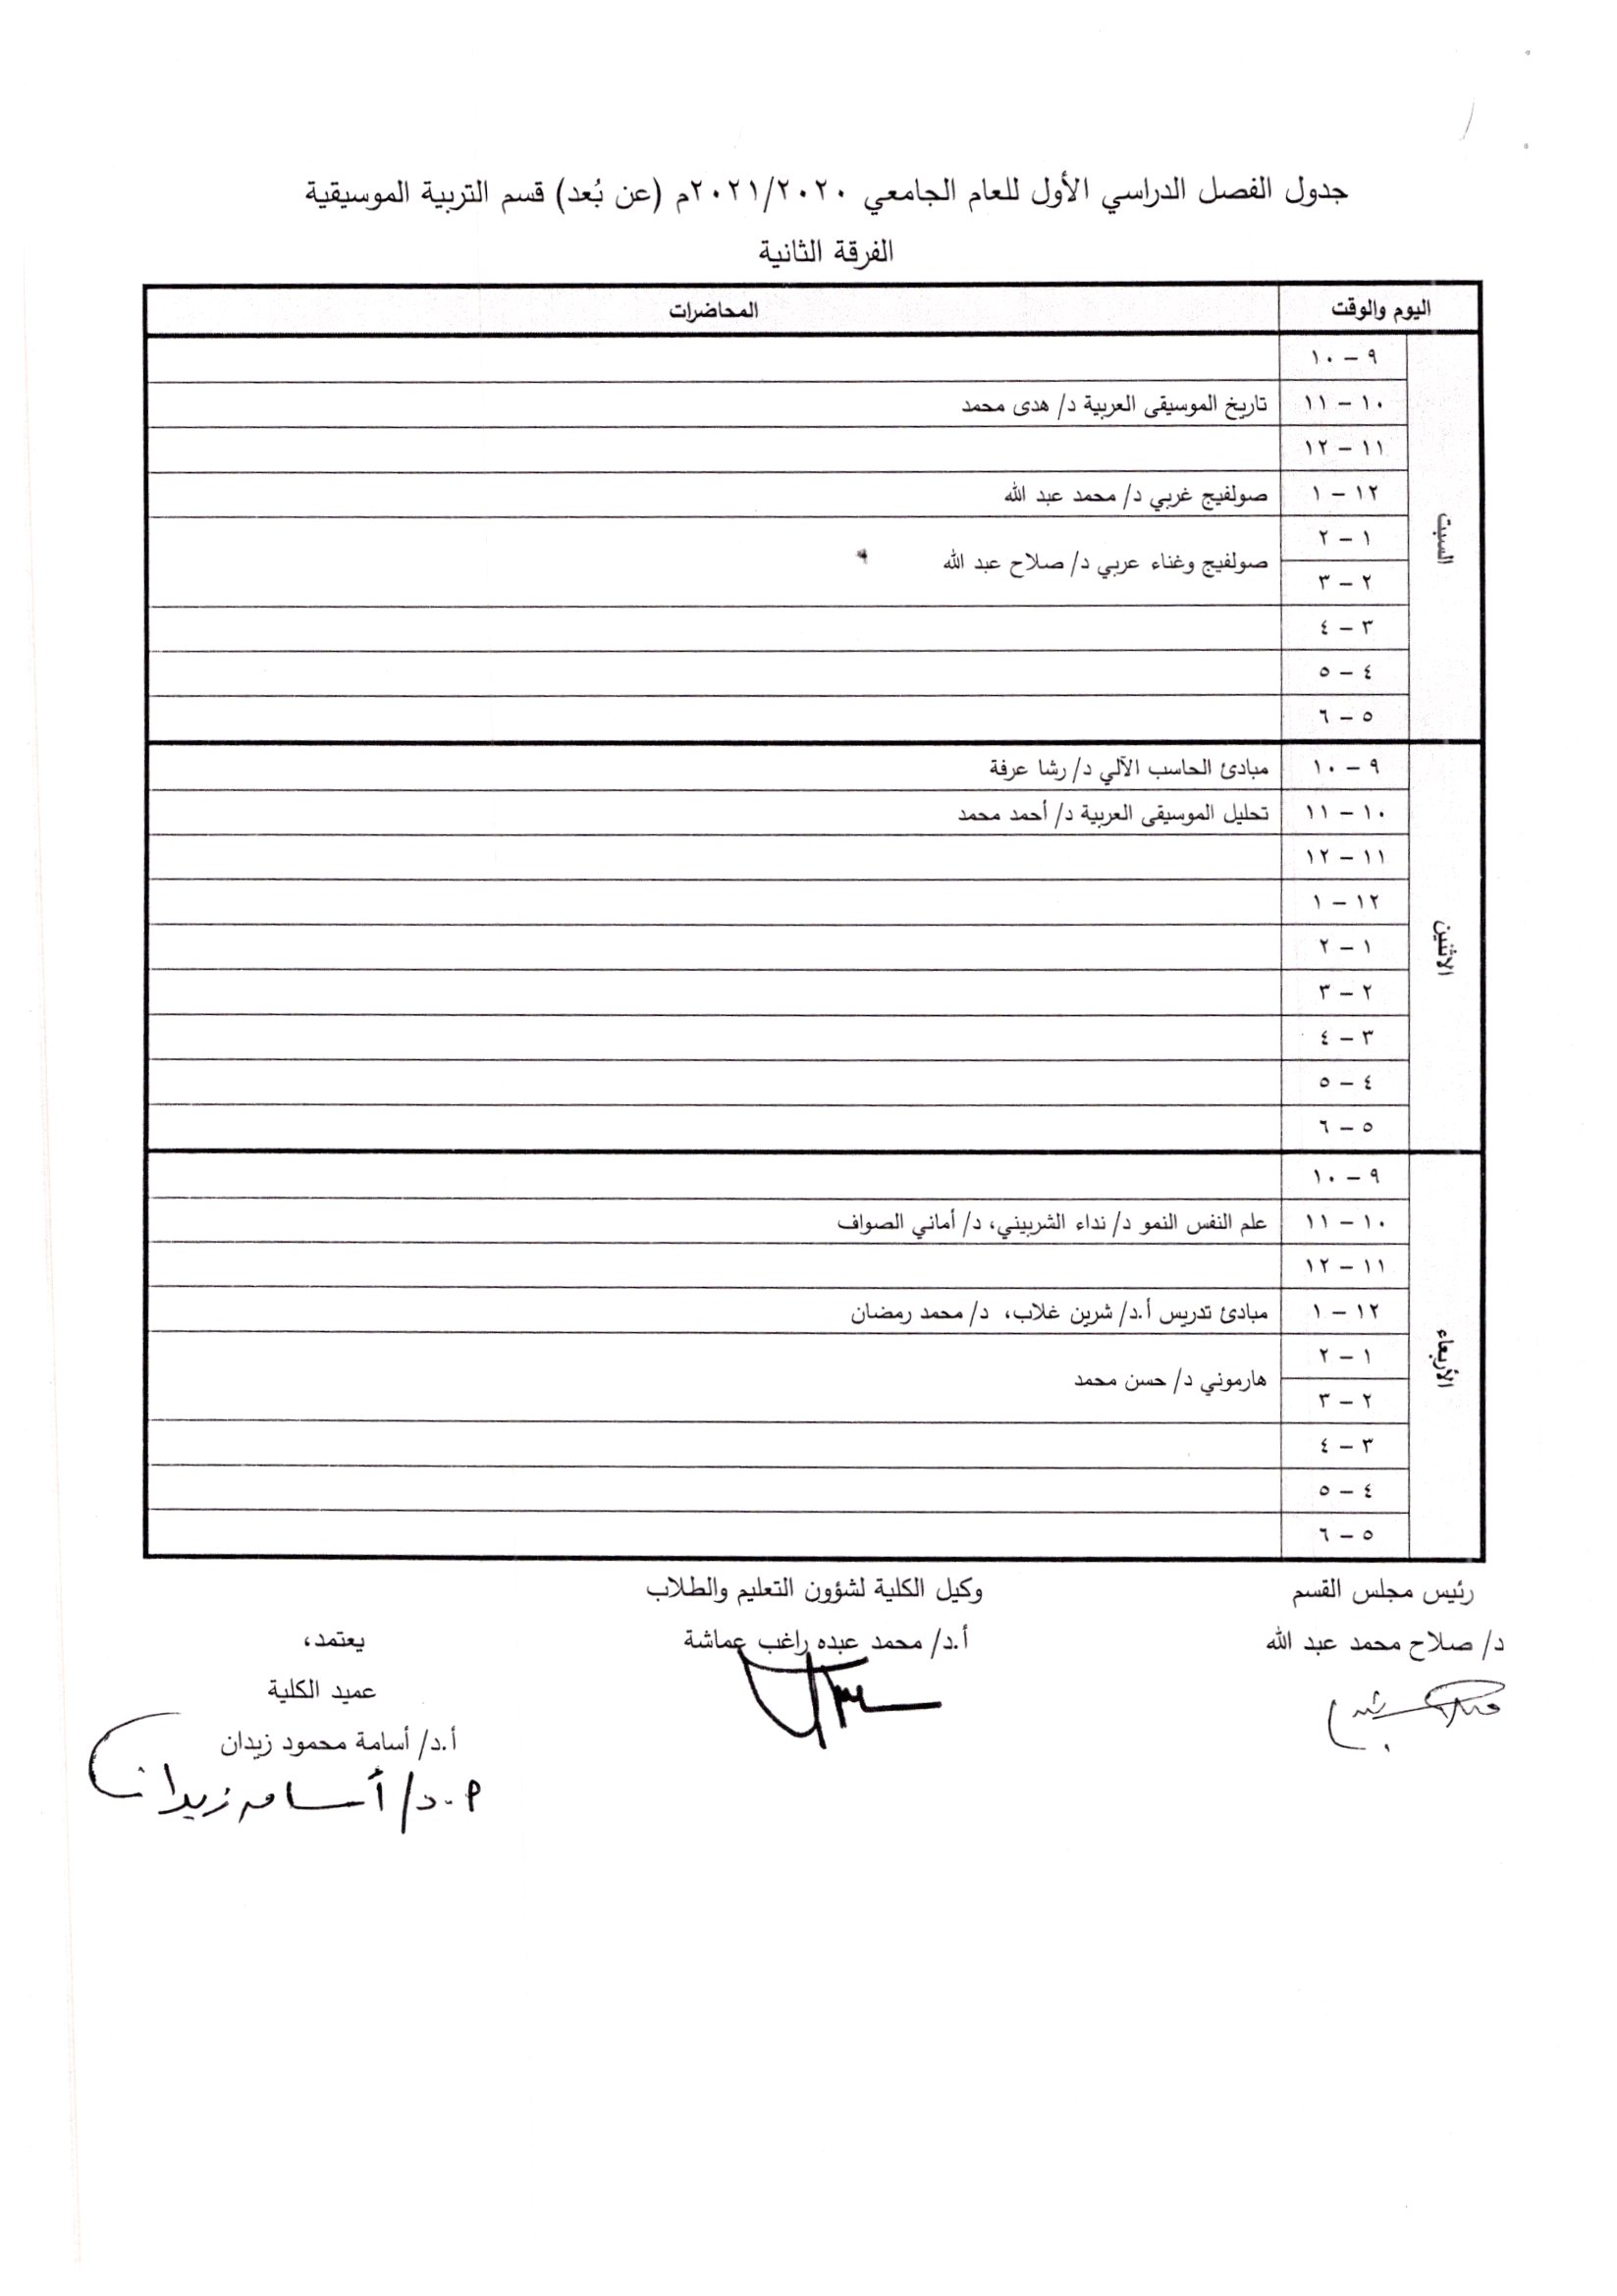 جدول الفصل الدراسي الأول للعام الجامعي ٢٠٢١/٢٠٢٠م (عن بُعد) قسم التربية الموسيقية
الفرقة الثانية
اليوم والوقت المحاضرات
السبت
٩ – ١٠
١٠ – ١١ تاريخ الموسيقى العربية د/ هدى محمد
١١ – ١٢
١٢ – ١ صولفيج غربي د/ محمد عبد الله
١ – ٢
صولفيج وغناء عربي د/ صلاح عبد الله
٢ – ٣
٣ – ٤
٤ – ٥
٥ – ٦
الاثنين
٩ – ١٠ مبادئ الحاسب الآلي د/ رشا عرفة
١٠ – ١١ تحليل الموسيقى العربية د/ أحمد محمد
١١ – ١٢
١٢ – ١
١ – ٢
٢ – ٣
٣ – ٤
٤ – ٥
٥ – ٦
الأربعاء
٩ – ١٠
١٠ – ١١ علم النفس النمو د/ نداء الشربيني، د/ أماني الصواف
١١ – ١٢
١٢ – ١ مبادئ تدريس أ.د/ شرين غلاب، د/ محمد رمضان
١ – ٢
هارموني د/ حسن محمد
٢ – ٣
٣ – ٤
٤ – ٥
٥ – ٦
رئيس مجلس القسم وكيل الكلية لشؤون التعليم والطلاب
د/ صلاح محمد عبد الله أ.د/ محمد عبده راغب عماشة يعتمد،
عميد الكلية
أ.د/ أسامة محمود زيدان
أ.د/ أسامه زيدان